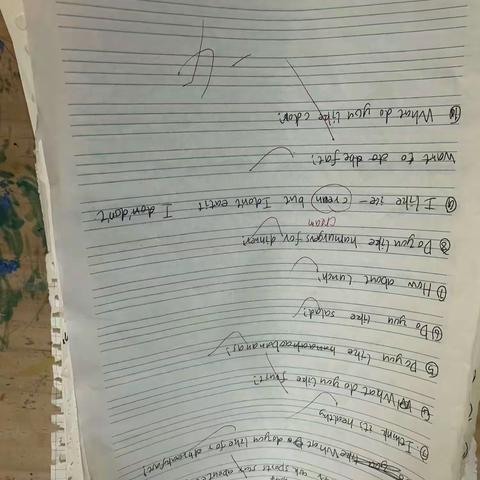 ask sports stars about
What do you like for
I think it's healthy
④ What do you like fruit?
⑤ Do you like bananas!
⑥ Do you like salad?
⑦ How about lunch?
⑧ Do you like hamurgers for dinner?
cream
⑨ I like ice-cream but I dont eat it I don'don't
want to be fat?
⑩ What do you like color?
-4